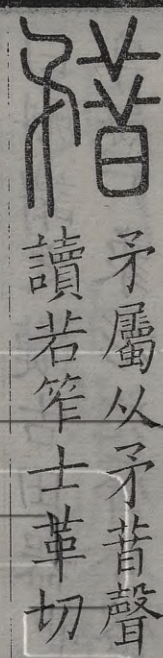 矠
矛屬从矛昔聲
讀若笮士革切